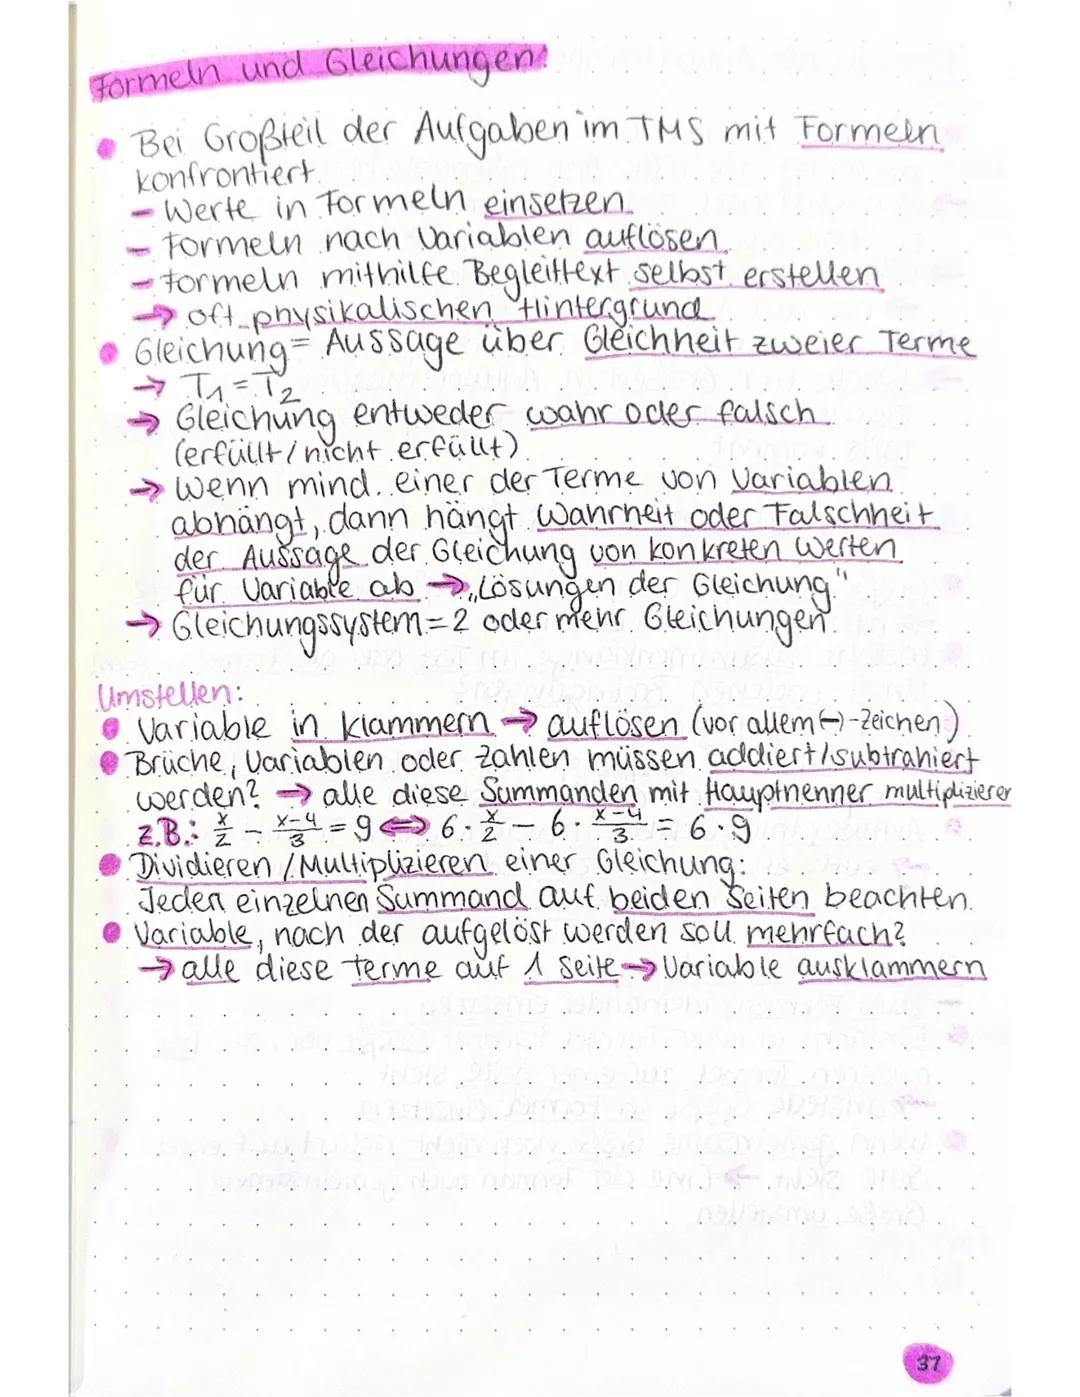 Formeln und Gleichungen:
• Bei Großteil der Aufgaben im TMS mit Formeln
konfrontiert.
- Werte in Formeln einsetzen.
- Formeln nach Variablen auflösen
- Formeln mithilfe Begleittext selbst erstellen
→ oft physikalischen Hintergrund
• Gleichung = Aussage über Gleichheit zweier Terme
→ T₁ = T₂
→ Gleichung entweder wahr oder falsch
(erfüllt/nicht erfüllt)
→ Wenn mind. einer der Terme von Variablen
abhängt, dann hängt Wahrheit oder Falschheit
der Aussage der Gleichung von konkreten Werten
für Variable ab → „Lösungen der Gleichung"
→ Gleichungssystem = 2 oder mehr Gleichungen
Umstellen:
• Variable in Klammern → auflösen (vor allem (-)-Zeichen)
• Brüche, Variablen oder Zahlen müssen addiert/subtrahiert
werden? → alle diese Summanden mit Hauptnenner multiplizieren
z.B.: x/2 - x-4/3 = 9 ⇔ 6 · x/2 - 6 · x-4/3 = 6 · 9
• Dividieren / Multiplizieren einer Gleichung:
Jeden einzelnen Summand auf beiden Seiten beachten.
• Variable, nach der aufgelöst werden soll mehrfach?
→ alle diese Terme auf 1 Seite → Variable ausklammern
37